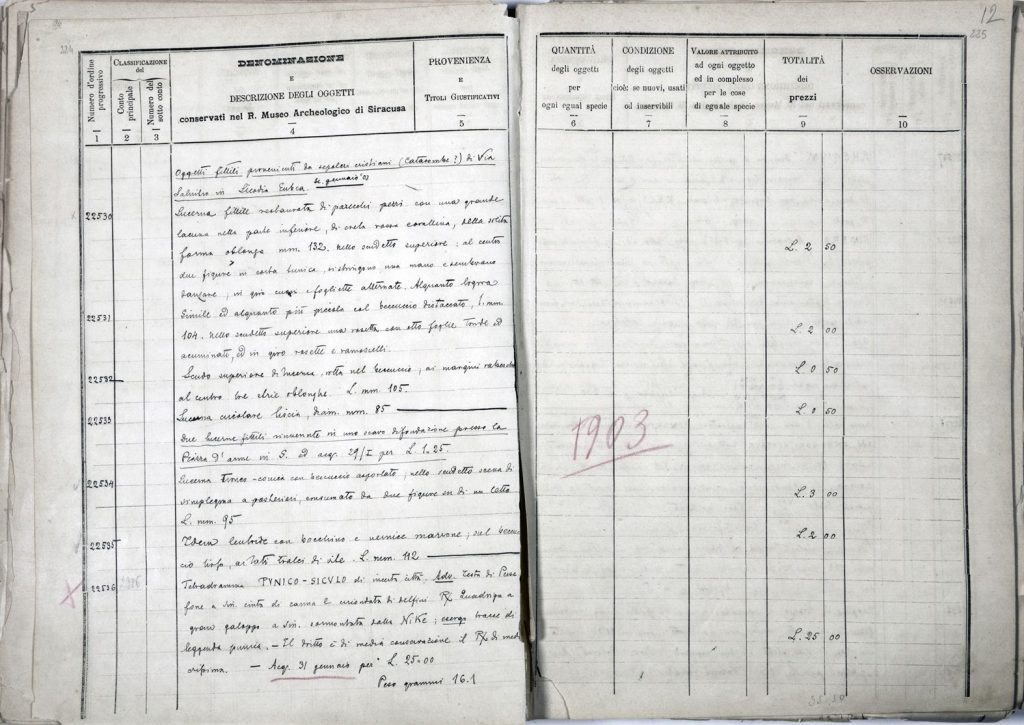 224
Numero d'ordine progressivo
CLASSIFICAZIONE del
Conto principale
Numero del sotto conto
DENOMINAZIONE
E
DESCRIZIONE DEGLI OGGETTI
conservati nel R. Museo Archeologico di Siracusa
PROVENIENZA
E
TITOLI GIUSTIFICATIVI
1 2 3 4 5
Oggetti fittili provenienti da sepolcri cristiani (Catacombe?) di Via
in Licodia Eubea. gennaio 03
22530 Lucerna fittile restaurata di parecchi pezzi con una grande
lacuna nella parte inferiore, di creta rossa corallina, della solita
forma oblonga mm. 132. Nello scudetto superiore; al centro
due figure in corta tunica, si stringono una mano e sembrano
danzare, in giro cuori e fogliette alternate. Alquanto logora
22531 Simile ed alquanto più piccola col beccuccio distaccato, l. mm.
104. Nello scudetto superiore una rosetta con otto foglie tonde ed
acuminate, ed in giro rosette e ramoscelli.
22532 Scudo superiore di lucerna, rotta nel beccuccio, ai margini
al centro tre oblonghe. L. mm. 105.
22533 Lucerna circolare liscia, diam. mm. 85
Due lucerne fittili rinvenute in uno scavo di fondazione presso la
Piazza d'armi in S. ed acq. 29/I per L. 1.25.
22534 Lucerna con beccuccio asportato, nello scudetto scena di
simplegma a posteriori, consumato da due figure su di un letto
L. mm. 95
22535 Idem con bocchino e vernice marrone; sul
tralci di vite. L. mm. 112
22536 Tetradramma PVNICO-SICULO di incerta città. Adv. Testa di
fone a sin. cinta di canne e circondata di delfini Rx Quadriga a
gran galoppo a sin. sormontata dalla Nike; esergo tracce di
leggenda punica. - Il dritto è di media conservazione il Rx di
- Acq. 31 gennaio per L. 25.00
Peso grammi 16.1
12
225
QUANTITÀ
degli oggetti
per
ogni egual specie
CONDIZIONE
degli oggetti
cioè: se nuovi, usati
od inservibili
VALORE ATTRIBUITO
ad ogni oggetto
ed in complesso
per le cose
di eguale specie
TOTALITÀ
dei
prezzi
OSSERVAZIONI
6 7 8 9 10
L. 2 50
L. 2 00
L. 0 50
L. 0 50
1903
L. 3 00
L. 2 00
L. 25 00